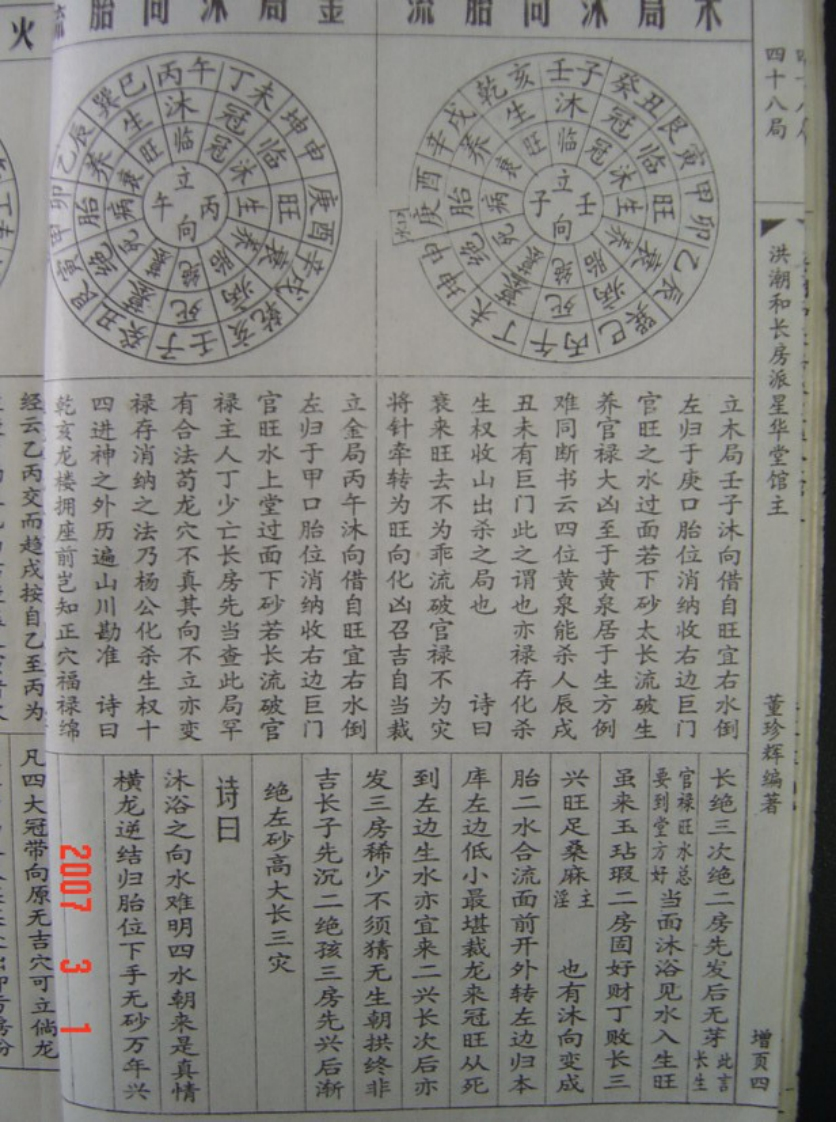 四十八局
洪潮和长房派星华堂馆主
董珍辉编著
增页四
木局沐向胎流
壬子
癸丑
艮寅
甲卯
乙辰
巽巳
丙午
丁未
坤申
庚酉
辛戌
乾亥
沐
冠
临
旺
衰
病
死
墓
绝
胎
养
生
临
冠
沐
生
养
胎
绝
墓
死
病
衰
旺
立
壬
向
子
水口
立木局壬子沐向借自旺宜右水倒
左归于庚口胎位消纳收右边巨门
官旺之水过面若下砂太长流破生
养官禄大凶至于黄泉居于生方例
难同断书云四位黄泉能杀人辰戌
丑未有巨门此之谓也亦禄存化杀
生权收山出杀之局也 诗曰
衰来旺去不为乖流破官禄不为灾
将针牵转为旺向化凶召吉自当裁
金局沐向胎流
丙午
丁未
坤申
庚酉
辛戌
乾亥
壬子
癸丑
艮寅
甲卯
乙辰
巽巳
沐
冠
临
旺
衰
病
死
墓
绝
胎
养
生
临
冠
沐
生
养
胎
绝
墓
死
病
衰
旺
立
丙
向
午
立金局丙午沐向借自旺宜右水倒
左归于甲口胎位消纳收右边巨门
官旺水上堂过面下砂若长流破官
禄主人丁少亡长房先当查此局罕
有合法苟龙穴不真其向不立亦变
禄存消纳之法乃杨公化杀生权十
四进神之外历遍山川勘准 诗曰
乾亥龙楼拥座前岂知正穴福禄绵
经云乙丙交而趋戌按自乙至丙为
长绝三次绝二房先发后无芽此言长生
官禄旺水总要到堂方好当面沐浴见水入生旺
虽来玉玷瑕二房固好财丁败长三
兴旺足桑麻主淫 也有沐向变成
胎二水合流面前开外转左边归本
库左边低小最堪裁龙来冠旺从死
到左边生水亦宜来二兴长次后亦
发三房稀少不须猜无生朝拱终非
吉长子先沉二绝孩三房先兴后渐
绝左砂高大长三灾
诗曰
沐浴之向水难明四水朝来是真情
横龙逆结归胎位下手无砂万年兴
凡四大冠带向原无吉穴可立倘龙
火
2007 3 1